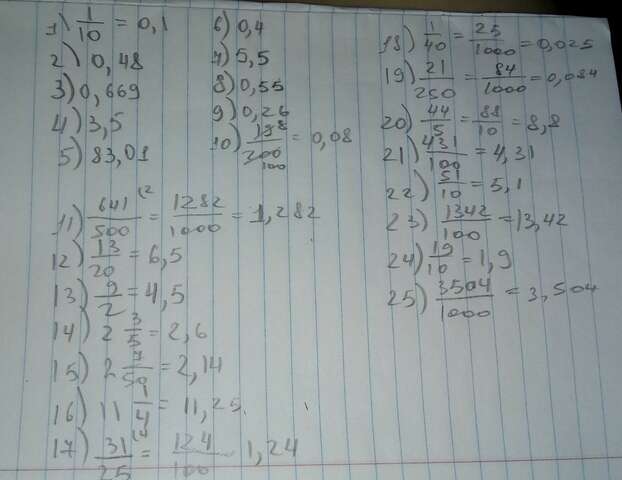 1) 1/10 = 0,1
2) 0,48
3) 0,669
4) 3,5
5) 83,01
6) 0,4
7) 5,5
8) 0,55
9) 0,26
10) 188/300 100 = 0,08
11) 641/500 (2 = 1282/1000 = 1,282
12) 13/20 = 6,5
13) 9/2 = 4,5
14) 2 3/5 = 2,6
15) 2 7/50 = 2,14
16) 11 1/4 = 11,25
17) 31/25 (4 = 124/100 1,24
18) 1/40 = 25/1000 = 0,025
19) 21/250 = 84/1000 = 0,084
20) 44/5 = 88/10 = 8,8
21) 431/100 = 4,31
22) 51/10 = 5,1
23) 1342/100 = 13,42
24) 19/10 = 1,9
25) 3504/1000 = 3,504